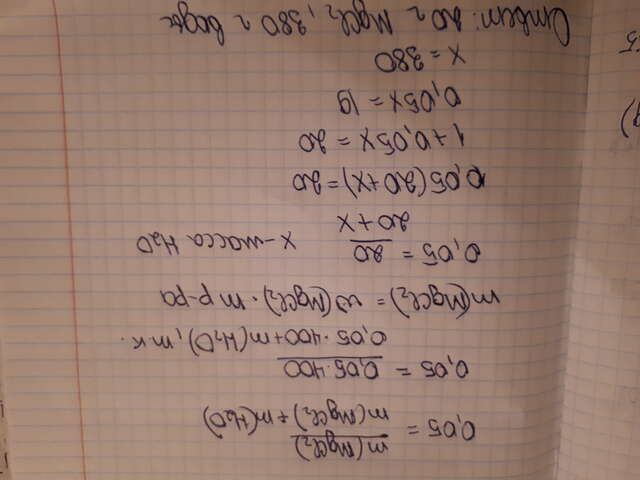 0,05 = m(MgCl₂) / m(MgCl₂) + m(H₂O)
0,05 = 0,05·400 / 0,05·400 + m(H₂O), т.к.
m(MgCl₂) = w(MgCl₂) · m р-ра
0,05 = 20 / 20 + x x - масса H₂O
0,05(20+x) = 20
1 + 0,05x = 20
0,05x = 19
x = 380
Ответ: 20 г MgCl₂, 380 г воды